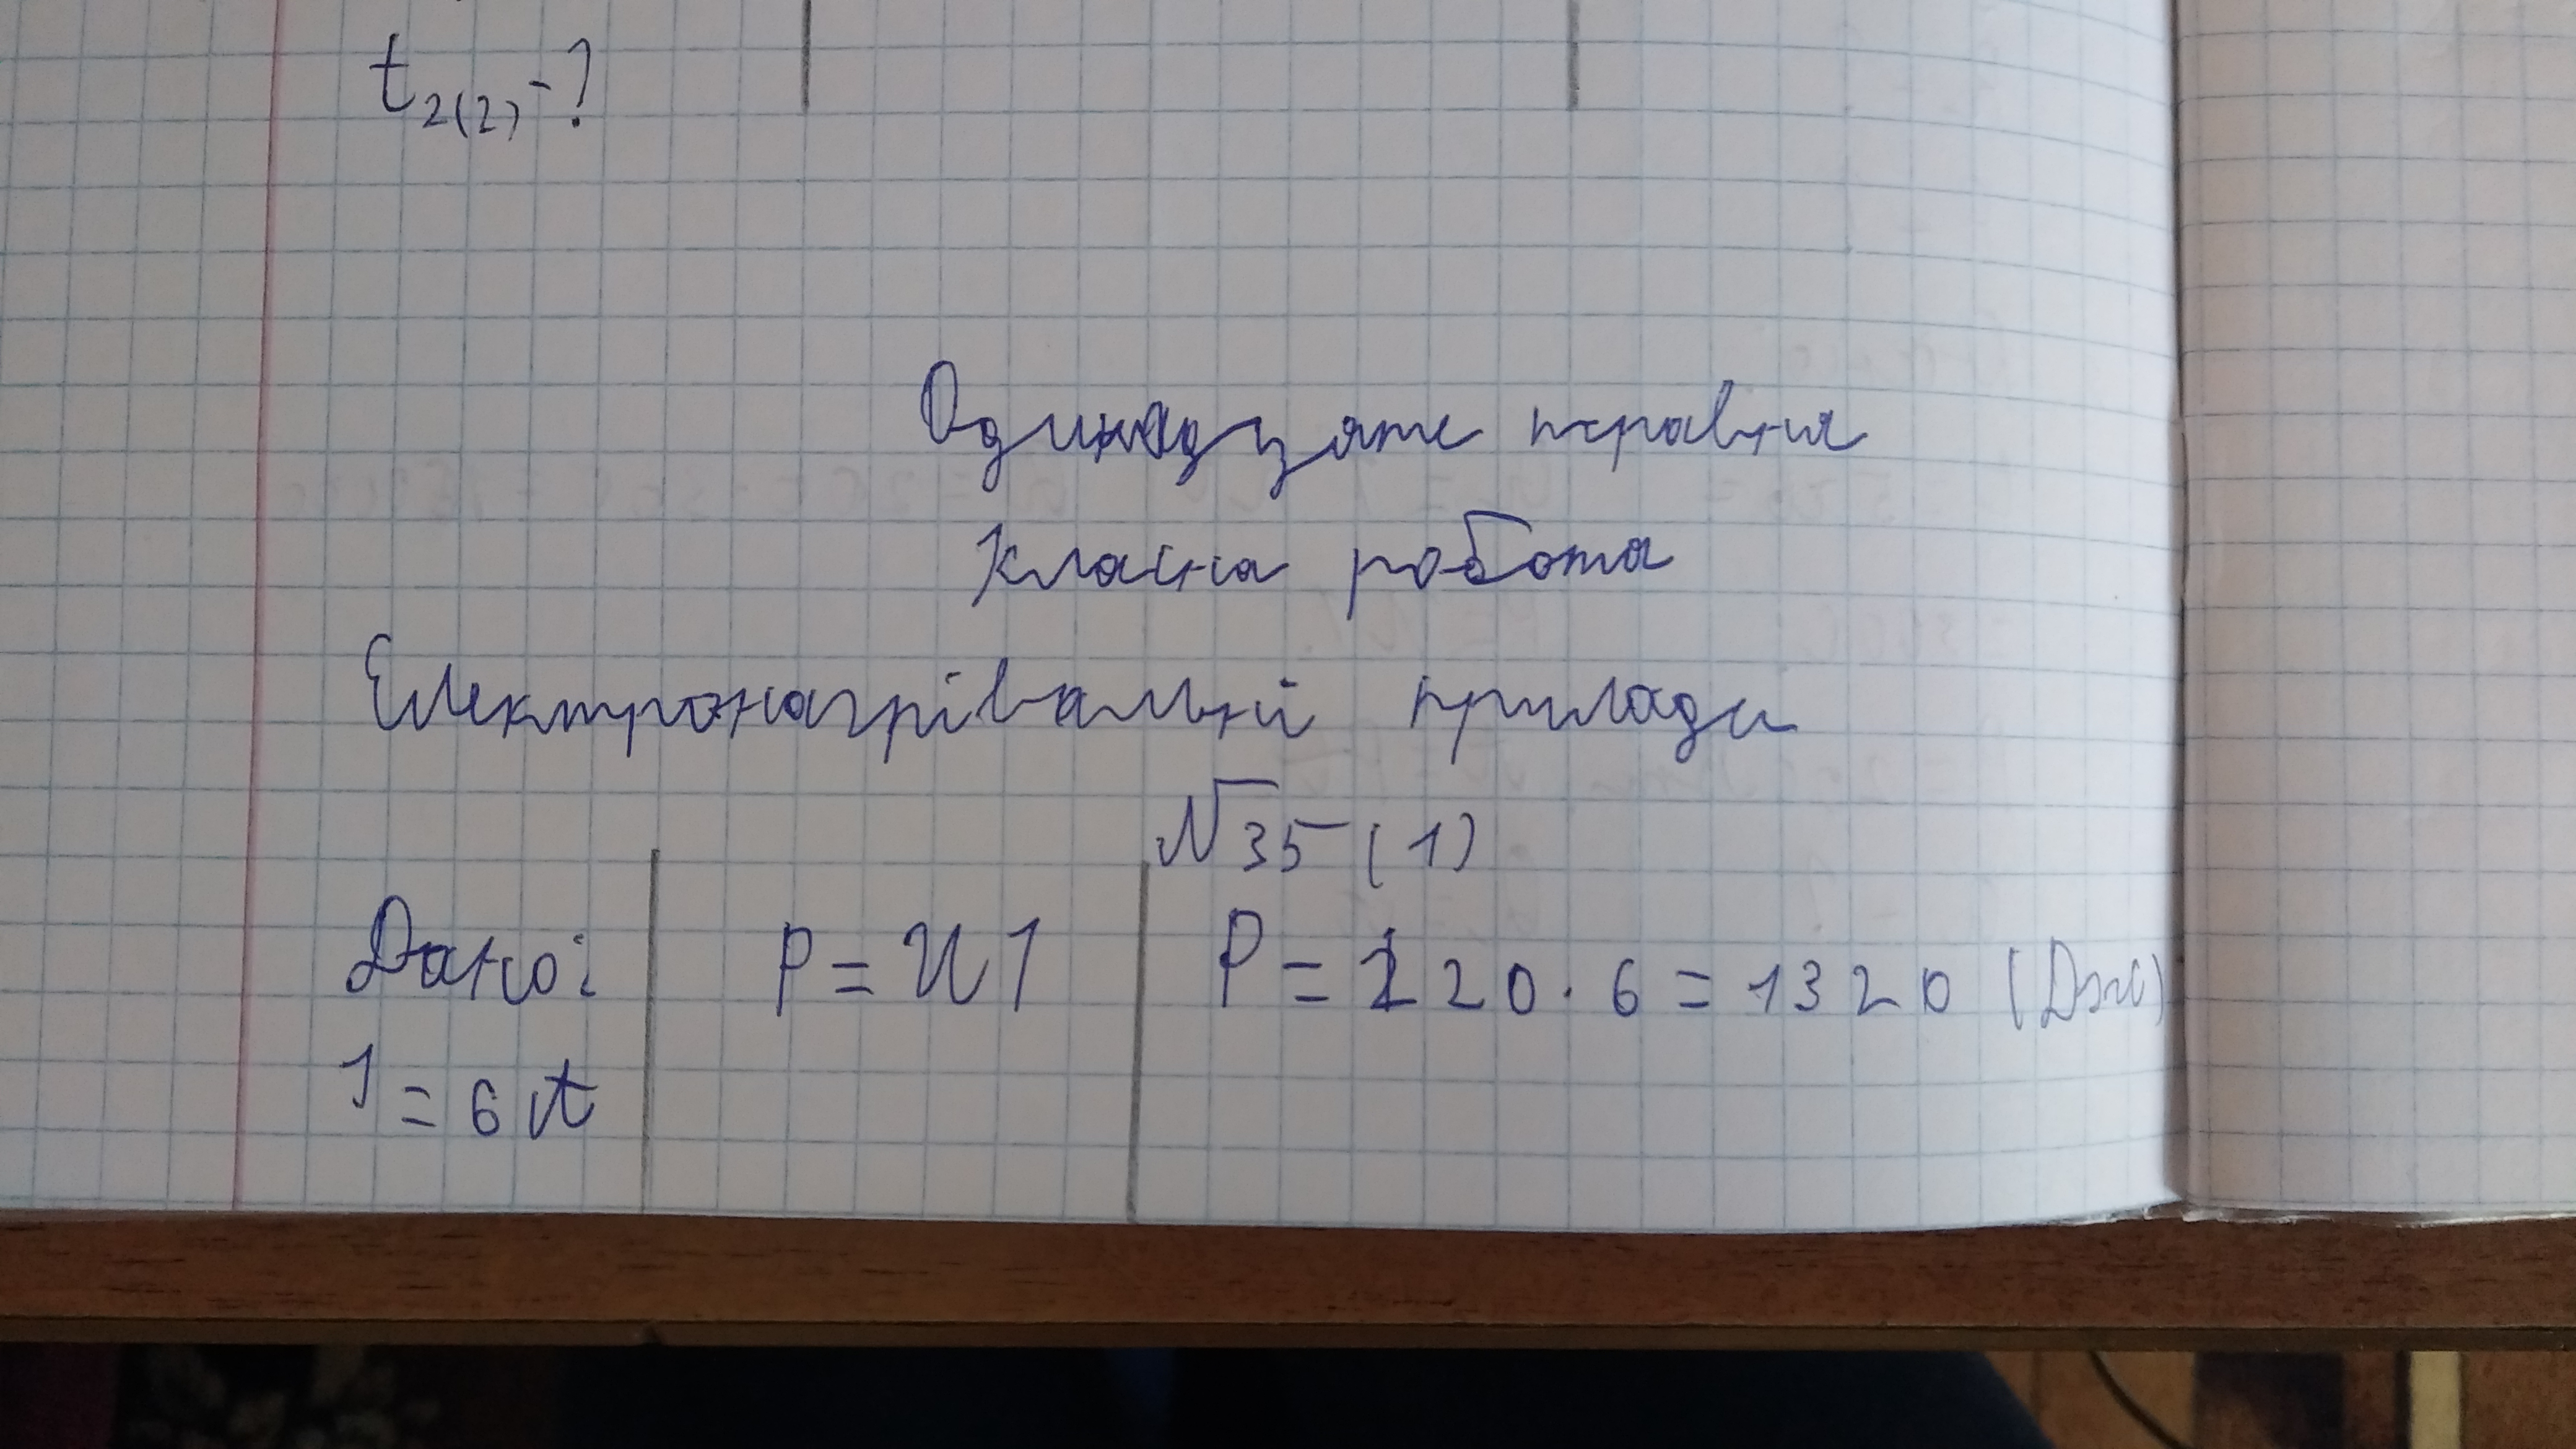 t₂₍₂₎ - ?
Одинадцяте травня
Класна робота
Електронагрівальні прилади
№35 (1)
Дано: P = UI P = 220 · 6 = 1320 (Дж)
I = 6 А